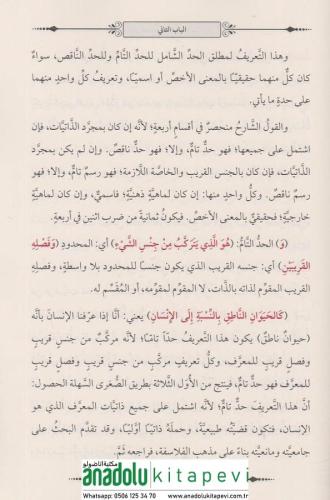 الباب الثاني
وهذا التعريفُ لمطلق الحدّ الشّامل للحدّ التّامِّ وللحدّ النّاقص، سواءٌ
كان كلٌّ منهما حقيقيًّا بالمعنى الأخصّ أو اسميًّا، وتعريفُ كلّ واحدٍ منهما
على حدةٍ ما يأتي.
والقولُ الشّارحُ منحصرٌ في أقسام أربعةٍ؛ لأنّه إن كان بمجرّد الذّاتيّات، فإن
اشتمل على جميعها؛ فهو حدٌّ تامٌّ، وإلا؛ فهو حدٌّ ناقصٌ. وإن لم يكن بمجرّد
الذّاتيّات، فإن كان بالجنس القريب والخاصّة اللّازمة؛ فهو رسمٌ تامٌّ، وإلا؛ فهو
رسمٌ ناقصٌ. وكلُّ واحدٍ منها: إن كان لماهيّةٍ ذهنيّةٍ؛ فاسميٌّ، وإن كان لماهيّةٍ
خارجيّةٍ؛ فحقيقيٌّ بالمعنى الأخصّ. فيكونُ ثمانيةً من ضرب اثنين في أربعةٍ.
(وَ) الحدُّ التّامُّ: (هُوَ الَّذِي يَتَرَكَّبُ مِنْ جِنْسِ الشَّيْءِ) أي: المحدودِ (وَفَصْلِهِ
الْقَرِيبَيْنِ) أي: جنسه القريب الذي يكون جنسًا للمحدود بلا واسطةٍ، وفصلِهِ
القريب المقوّم لذاته بالذّات، لا المقوّم لمقومه، أو المقسّم له.
(كَالْحَيَوَانِ النَّاطِقِ بِالنِّسْبَةِ إِلَى الْإِنْسَانِ) يعني: أنّا إذا عرّفنا الإنسانَ بأنّه
(حيوانٌ ناطقٌ) يكون هذا التّعريفُ حدًّا تامًّا؛ لأنّه مركّبٌ من جنسٍ قريبٍ
وفصلٍ قريبٍ للمعرَّف، وكلُّ تعريفٍ مركّبٍ من جنسٍ قريبٍ وفصلٍ قريبٍ
للمعرَّف فهو حدٌّ تامٌّ، فينتج من الأوّل الثّلاثة بطريق الصُّغرى السّهلة الحصول:
أنّ هذا التّعريفَ حدٌّ تامٌّ؛ لأنّه اشتمل على جميع ذاتيّات المعرَّف الذي هو
الإنسان، فتكون قضيّتُه طبيعيّةً، وحملُه ذاتيًّا أوّليًّا، وقد تقدّم البحثُ على
جامعيّته ومانعيّته بناءً على مذهب الفلاسفة، فراجعه ثمَّ.
مكتبة الأناضولو
anadolukitapevi
Whatsapp: 0506 125 34 70 - www.anadolukitapevi.com